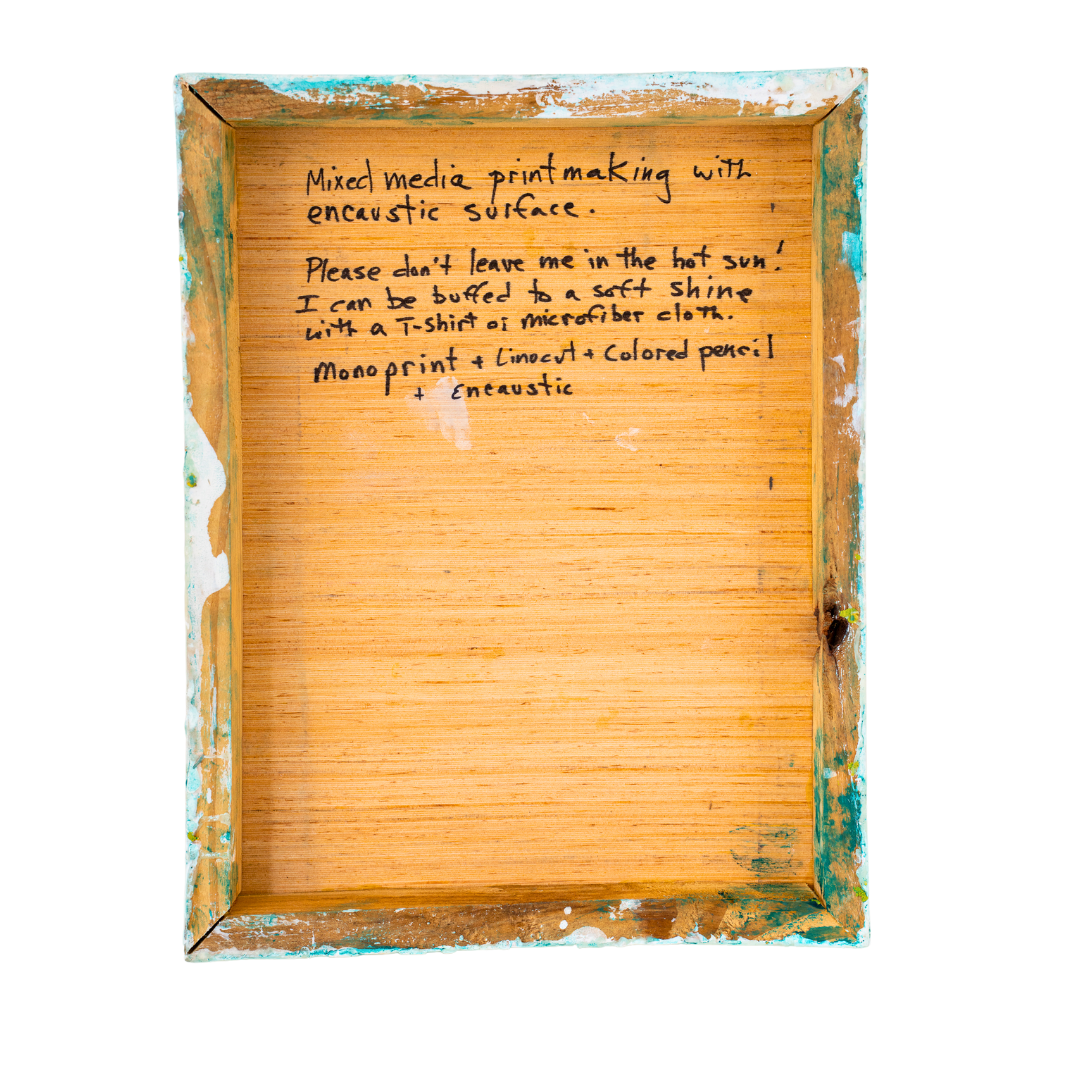 Mixed media printmaking with
encaustic surface.
Please don't leave me in the hot sun!
I can be buffed to a soft shine
with a T-shirt or microfiber cloth.
Monoprint + Linocut + Colored pencil
+ Encaustic